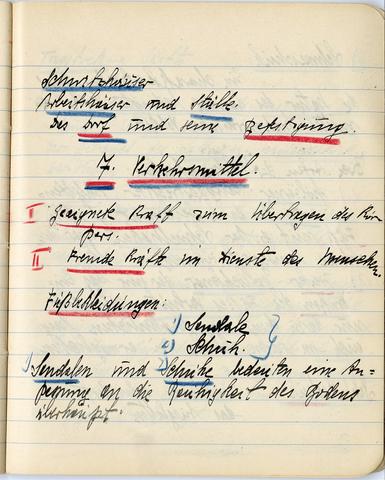 Schutzhäuser
Arbeitshäuser und Ställe.
Das Dorf und seine Befestigung.
7. Verkehrsmittel.
I geeignete Kraft zum Übertragen des Kör-
pers.
II Fremde Kräfte im Dienste des Menschen.
Fußbekleidungen:
1) Sandale
2) Schuh.
1) Sandalen und 2) Schuhe bedeuten eine An-
passung an die des Bodens
überhaupt.